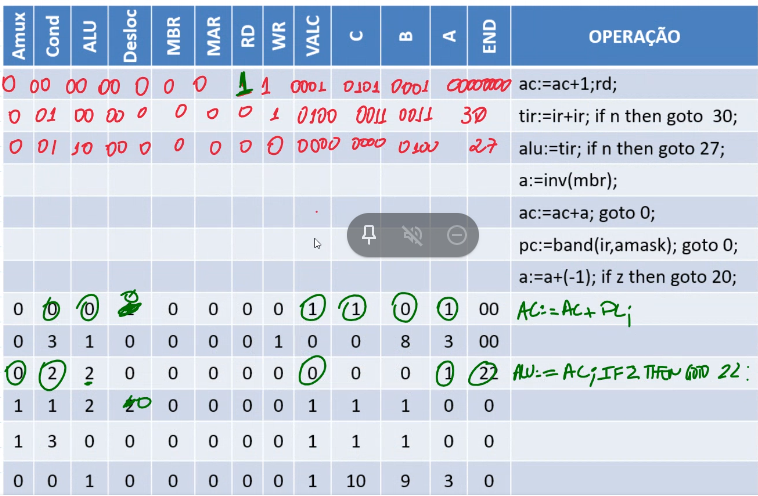 Amux Cond ALU Desloc MBR MAR RD WR VALC C B A END OPERAÇÃO
0 00 00 00 0 0 0 1 1 0001 0101 0001 0000000 ac:=ac+1;rd;
0 01 00 00 0 0 0 0 1 0100 0011 0011 30 tir:=ir+ir; if n then goto 30;
0 01 10 00 0 0 0 0 0 0000 0000 0100 27 alu:=tir; if n then goto 27;
a:=inv(mbr);
ac:=ac+a; goto 0;
pc:=band(ir,amask); goto 0;
a:=a+(-1); if z then goto 20;
0 0 0 0 0 0 0 0 1 1 0 1 00 AC:=AC+PC;
0 3 1 0 0 0 0 1 0 0 8 3 00
0 2 2 0 0 0 0 0 0 0 0 1 22 ALU:=AC; IF Z THEN GOTO 22;
1 1 2 0 0 0 0 0 1 1 1 0 0
1 3 0 0 0 0 0 0 1 1 1 0 0
0 0 1 0 0 0 0 0 1 10 9 3 0